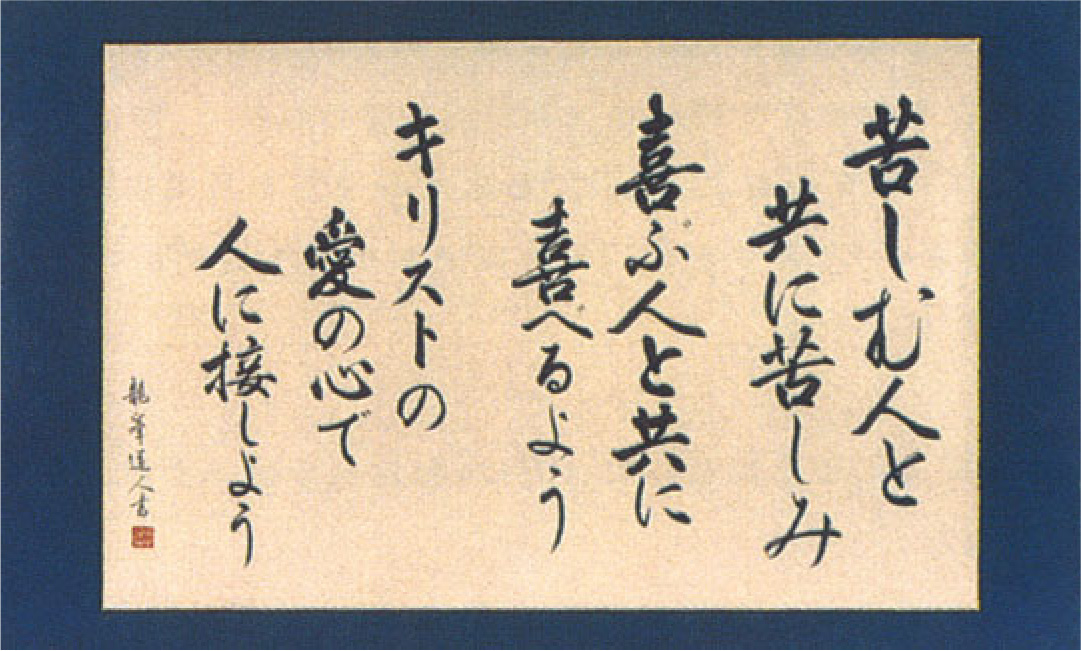 苦しむ人と
共に苦しみ
喜ぶ人と共に
喜べるよう
キリストの
愛の心で
人に接しよう
龍峯道人書